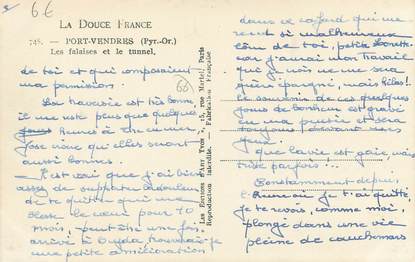 6€
LA DOUCE FRANCE
745. — PORT-VENDRES (Pyr.-Or.)
Les falaises et le tunnel.
de toi et qui composaient
ma permission.
La traversée est très bonne,
il me reste plus que quelques
jours heures à être en mer
j'ose croire qu'elles seront
aussi bonnes.
Il est vrai que j'ai bien
assez de supporter la douleur
de te quitter qui me
blesse le cœur pour 10
mois, peut-être une fois
arrivé à Oujda trouverai-je
une petite amélioration
Les Editions d'Art "Yvon", 15, rue Martel, Paris
Reproduction interdite. - Fabrication Française
66
dans ce cafard qui me
rend si malheureux
loin de toi, petite
car j'aurai mon travail
qui je vois ne me sera
guère épargné, mais hélas!
le souvenir de ces quelques
jours de bonheur est gravé
en ma pensée et sera
toujours devant mes
yeux.
que la vie est gaie, mais
triste parfois!..
Constamment depuis
l'heure où je t'ai quittée,
je te revois, comme moi,
plongé dans une vie
pleine de cauchemars